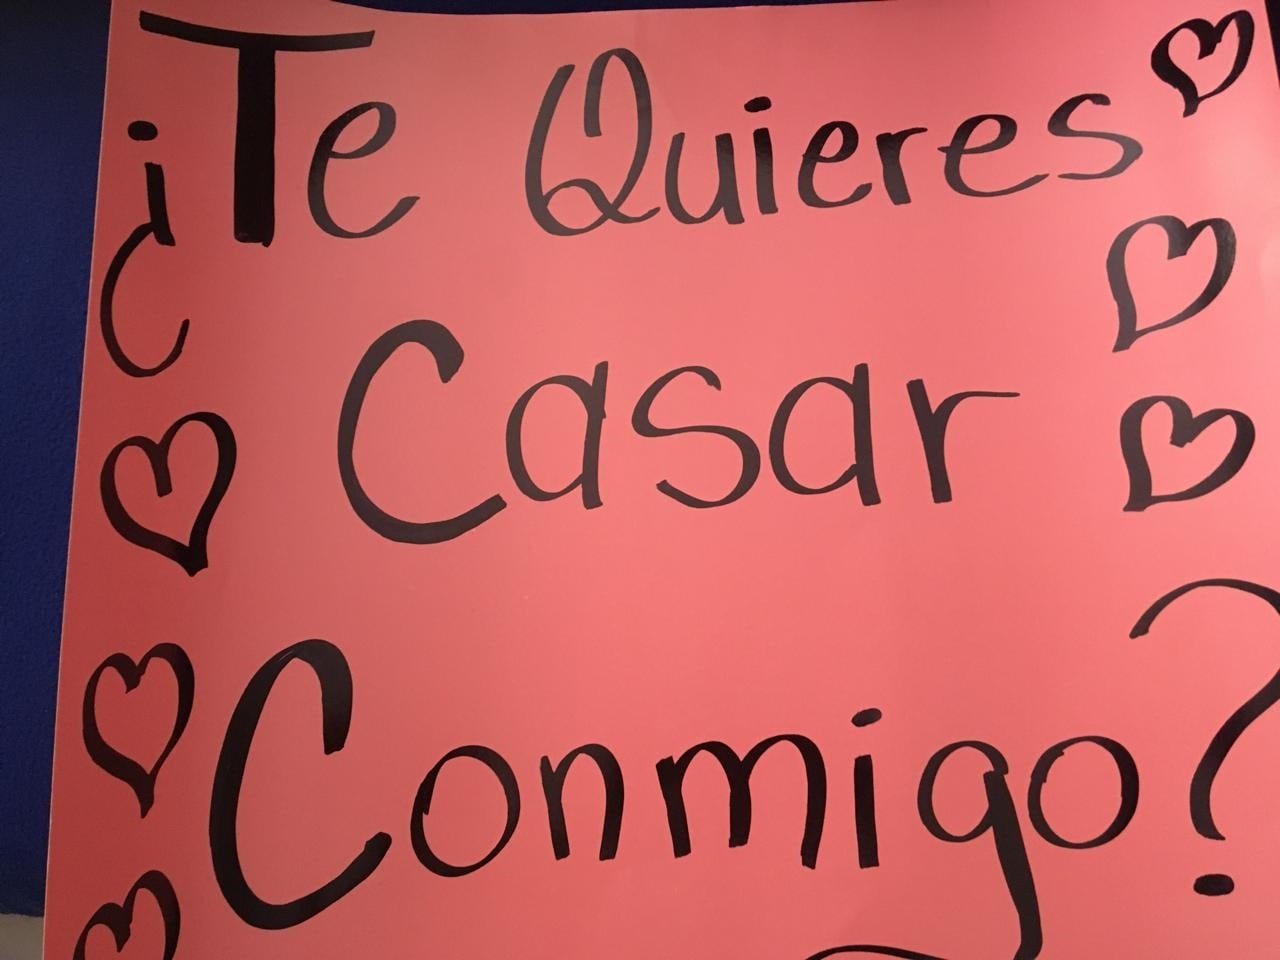 ¿Te Quieres
Casar
Conmigo?